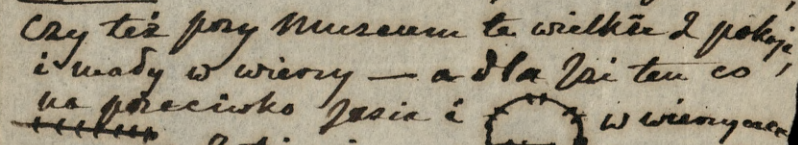 Czy też przy Museum te wielkie 2 pokoje
i mały w wieży — a dla Izi ten co
na przeciwko Jasia i w wieży